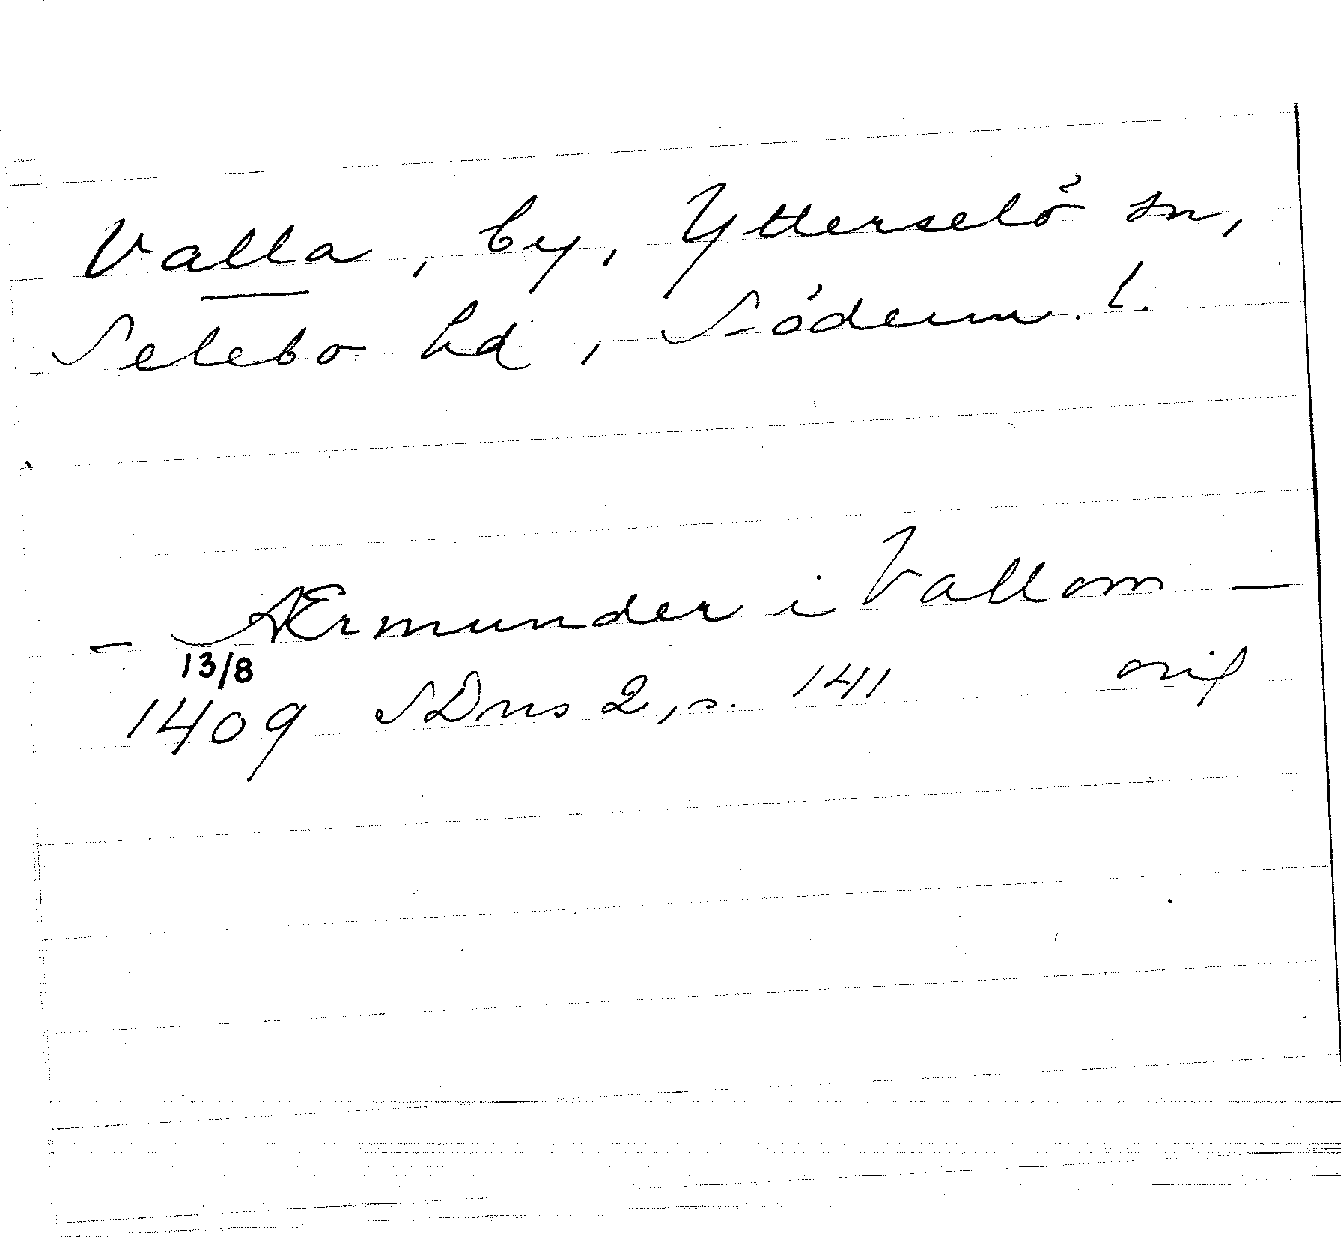 Valla, by, Ytterselö sn,
Selebo hd, Söderm. l.
– Ærmunder i Vallom –
13/8
1409 SDns 2, s. 141 orig